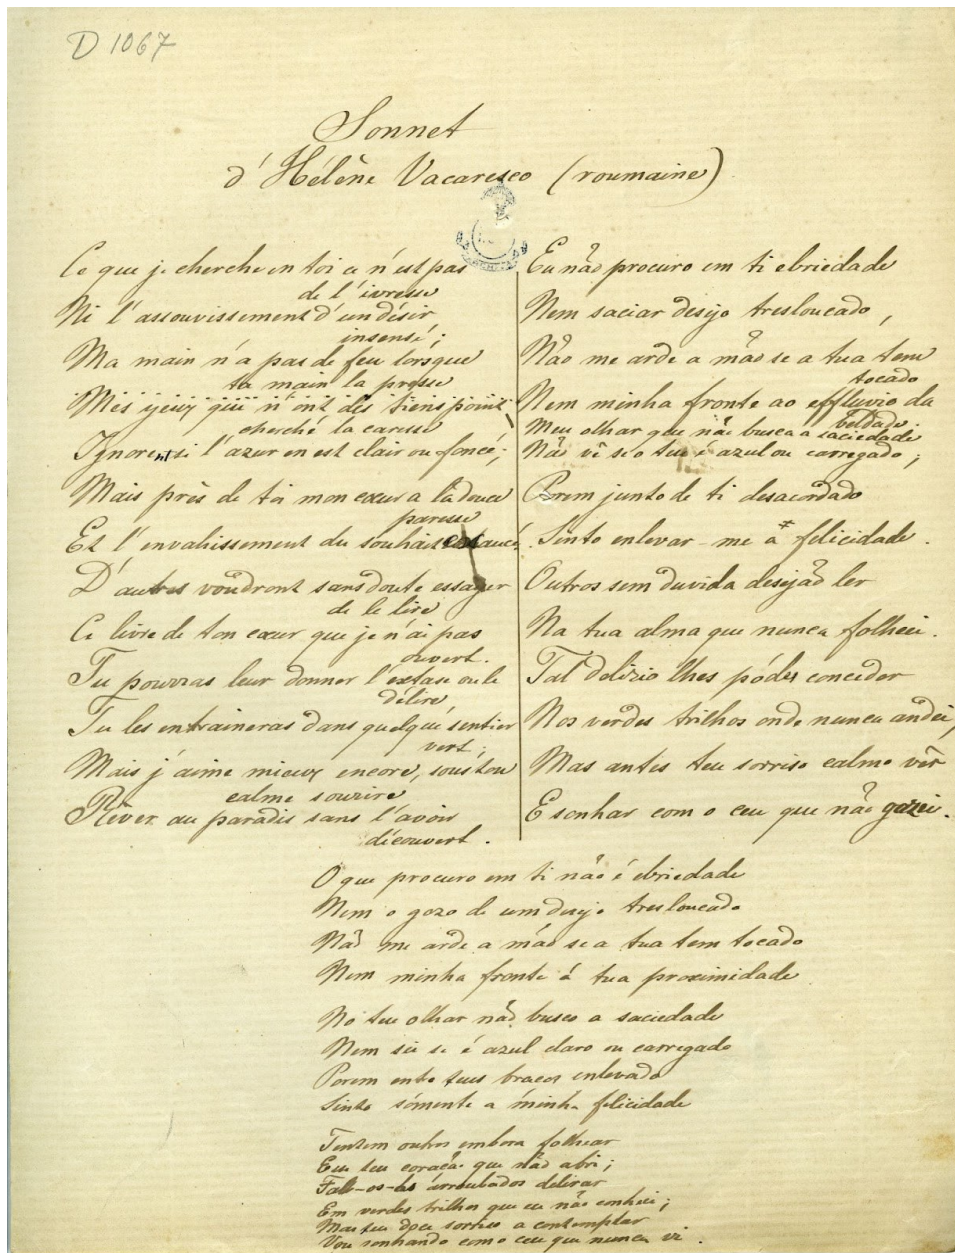 D 1067
Sonnet
d'Hélène Vacaresco (roumaine)
Ce que je cherche en toi ce n'est pas
de l'ivresse
Ni l'assouvissement d'un désir
insensé;
Ma main n'a pas de feu lorsque
ta main la presse
Mes yeux qui n'ont des tiens point
cherché la caresse
Ignorent si l'azur en est clair ou foncé;
Mais près de toi mon cœur a la douce
paresse
Et l'envahissement du souhait
D'autres voudront sans doute essayer
de le lire
Ce livre de ton cœur que je n'ai pas
ouvert.
Tu pourras leur donner l'extase ou le
délire
Tu les entraineras dans quelque sentier
vert;
Mais j'aime mieux encore, sous ton
calme sourire
Rêver au paradis sans l'avoir
découvert.
Eu não procuro em ti ebriedade
Nem saciar desejo tresloucado,
Não me arde a mão se a tua tem
tocado
Nem minha fronte ao effluvio da
beldade.
Meu olhar que não busca a saciedade
Não vê se o teu é azul ou carregado;
Porem junto de ti desacordado
Sinto enlevar-me á felicidade.
Outros sem duvida desejão ler
Na tua alma que nunca folheei.
Tal delirio lhes pódes conceder
Nos verdes trilhos onde nunca andei,
Mas antes teu sorriso calmo vêr
E sonhar com o ceu que não gozei.
O que procuro em ti não é ebriedade
Nem o gozo de um desejo tresloucado
Não me arde a mão se a tua tem tocado
Nem minha fronte á tua proximidade
No teu olhar não busco a saciedade
Nem sei se é azul claro ou carregado
Porem ente teus braços enlevado
Sinto sómente a minha felicidade
Tentem outros embora folhear
Em teu coração que não abri;
Fal-os-ás arroubados delirar
Em verdes trilhos que eu não conheci;
Mas teu doce sorriso a contemplar
Vou sonhando como ceu que nunca vi.